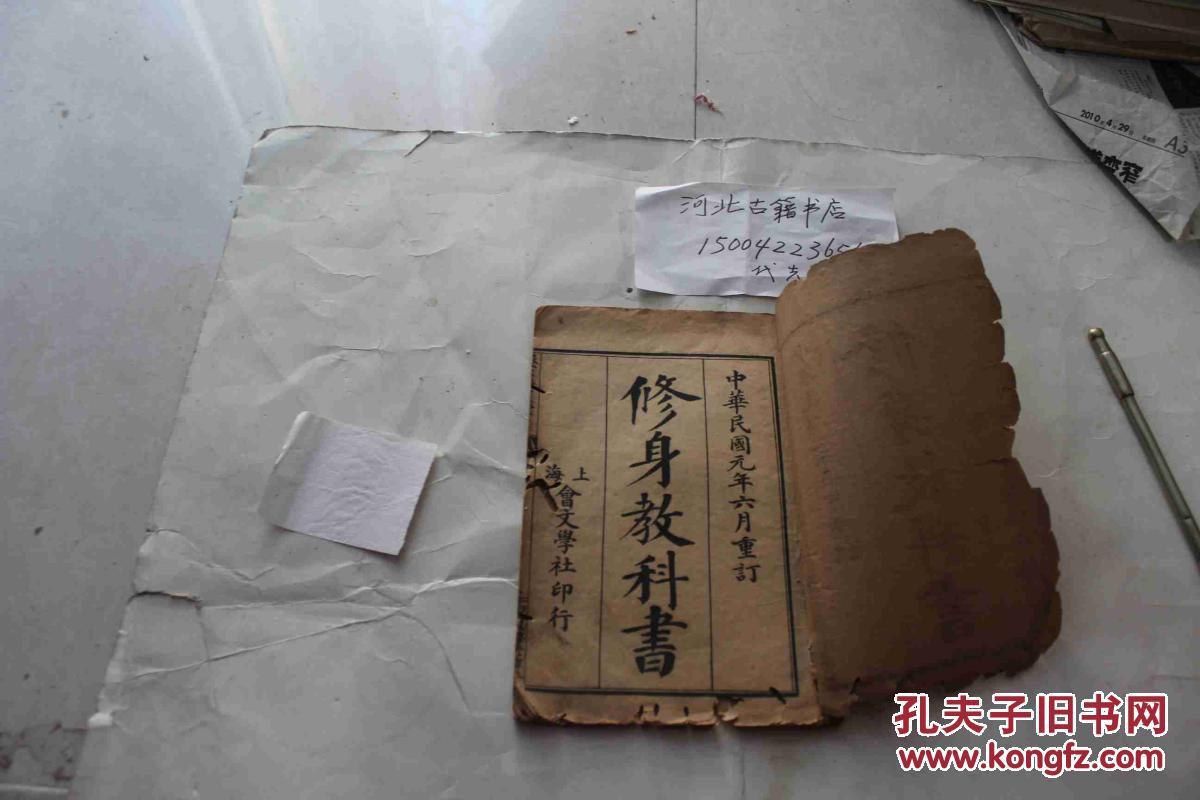 2010年4月29日
A3
河北古籍书店
1500422365
代
中華民國元年六月重訂
修身教科書
上海會文學社印行
孔夫子旧书网
www.kongfz.com